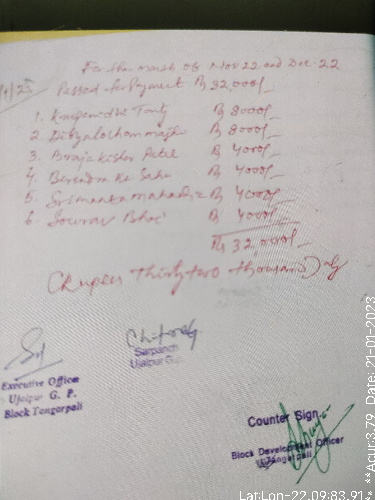 For the month of Nov 22 and Dec. 22
Passed for Payment ₨ 32,000/-
1. ₨ 8000/-
2. ₨ 8000/-
3. Braja Kishor Patel ₨ 4000/-
4. ₨ 4000/-
5. Srimanta ₨ 4000/-
6. Sourav ₨ 4000/-
₨ 32,000/-
(Rupees Thirty two thousand) Only
Executive Officer
Ujalpur G. P.
Block Tangarpali
Sarpanch
Ujalpur G.P.
Counter Sign
Block Development Officer
Tangarpali
**Acur:3.79 Date: 21-01-2023
Lat:Lon-22.09:83.91*